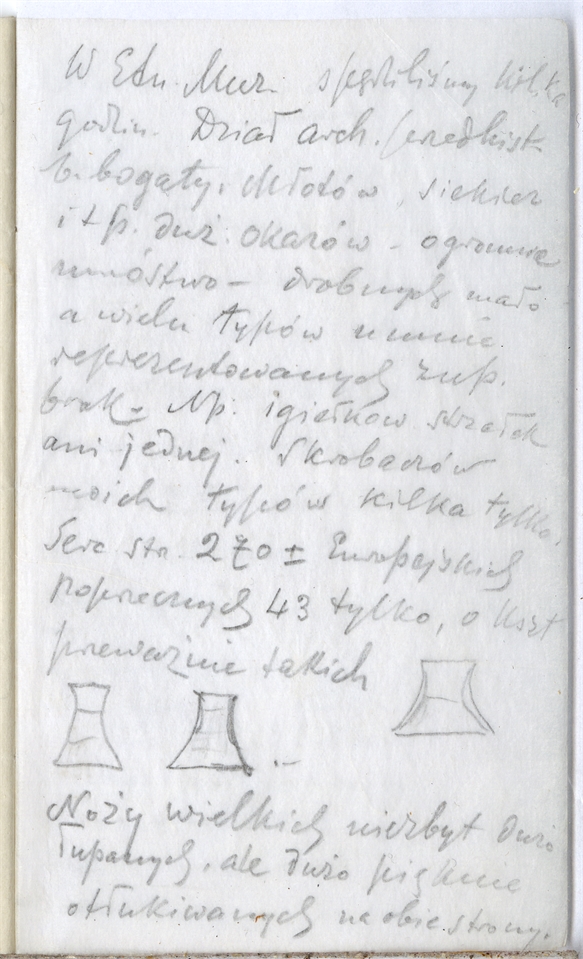 W Etn. Muz. spędziliśmy kilka
godzin. Dział arch. przedhist
b. bogaty. Młotów, siekier
i t p. duż. okazów - ogromne
mnóstwo - drobnych mało
a wielu typów u mnie
reprezentowanych zup.
brak - Np. igiełkow strzałek
ani jednej. Skrobaczów
moich typów kilka tylko.
Serc str. 270 ± Europejskich
poprzecznych 43 tylko, o kszt
przeważnie takich
Noży wielkich niezbyt dużo
łupanych, ale dużo pięknie
otłukiwanych na obie strony.